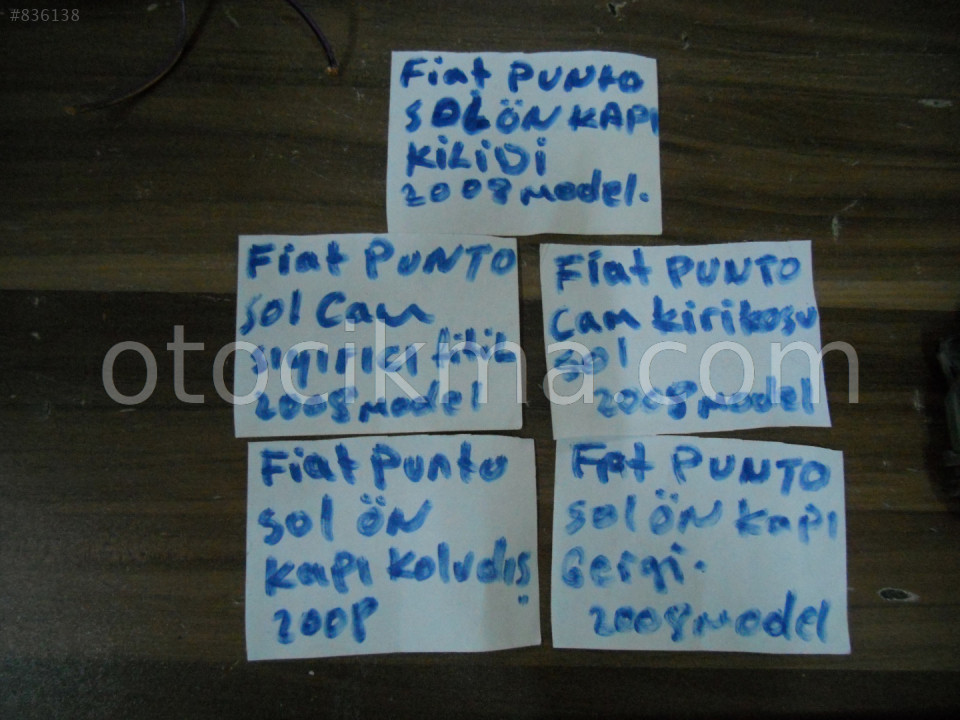 #836138
Fiat PUNTO
SOL ÖN KAPI
KiLiDi
2008 model.
Fiat PUNTO
sol Cam
sıyırıcı fitil
2008 model
Fiat PUNTO
Cam kirikosu
sol
2008 model
otocikma.com
Fiat Punto
sol ÖN
kapı Koludış
2008
Fiat PUNTO
sol ÖN kapı
Gergi.
2008 model